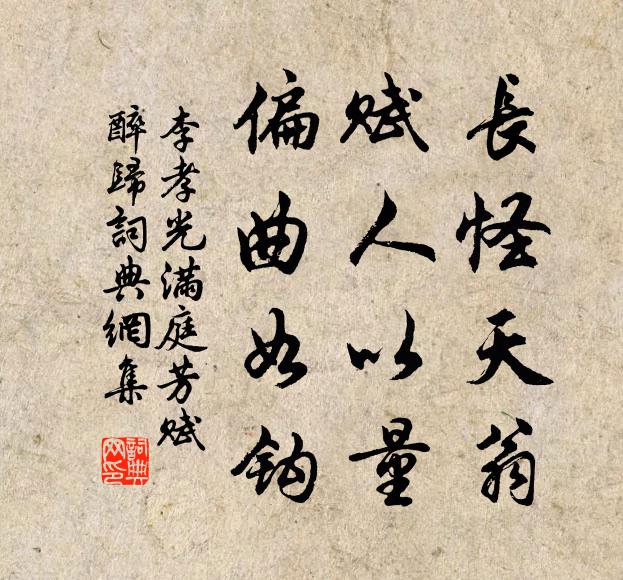 長怪天翁
賦人以量
偏曲如鈎
李孝光满庭芳賦
醉歸詞典網集
詞典
网印